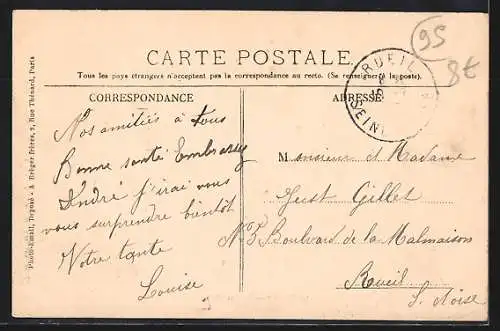 95
8€
CARTE POSTALE
Tous les pays étrangers n'acceptent pas la correspondance au recto. (Se renseigner à la poste).
CORRESPONDANCE
ADRESSE
RUEIL
SEINE
Nos amitiés à tous
Bonne santé Embrassez
André j'irai vous
vous surprendre bientôt
Votre tante
Louise
Monsieur et Madame
Just Gillet
N° 3 Boulevard de la Malmaison
Rueil
S. Oise
Photo-Email, Déposé - A. Bréger frères, 9, Rue Thénard, Paris